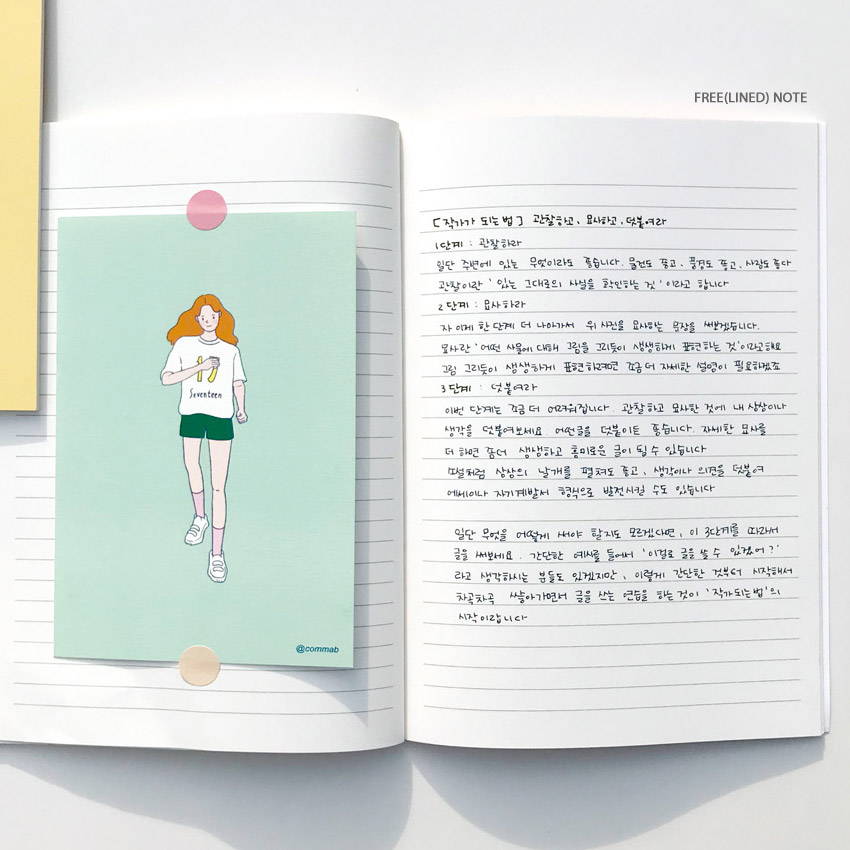 FREE(LINED) NOTE
17
Seventeen
@commab
[작가가 되는 법] 관찰하고, 묘사하고, 덧붙여라
1단계 : 관찰하라
일단 주변에 있는 무엇이라도 좋습니다. 물건도 좋고, 풍경도 좋고, 사람도 좋다
관찰이란 '있는 그대로의 사실을 확인하는 것'이라고 합니다
2단계 : 묘사하라
자 이제 한 단계 더 나아가서 위 사진을 묘사하는 문장을 써보겠습니다.
묘사란 '어떤 사물에 대해 그림을 그리듯이 생생하게 표현하는 것'이라고해요
그림 그리듯이 생생하게 표현하려면 조금 더 자세한 설명이 필요하겠죠
3단계 : 덧붙여라
이번 단계는 조금 더 어려워집니다. 관찰하고 묘사한 것에 내 상상이나
생각을 덧붙여보세요. 어떤글을 덧붙이든 좋습니다. 자세한 묘사를
더 하면 좀더 생생하고 흥미로운 글이 될 수 있습니다
소설처럼 상상의 날개를 펼쳐도 좋고, 생각이나 의견을 덧붙여
에세이나 자기계발서 형식으로 발전시킬 수도 있습니다
일단 무엇을 어떻게 써야 할지도 모르겠다면, 이 3단계를 따라서
글을 써보세요. 간단한 예시를 들어서 '이걸로 글을 쓸 수 있겠어?'
라고 생각하시는 분들도 있겠지만, 이렇게 간단한 것부터 시작해서
차곡차곡 쌓아가면서 글을 쓰는 연습을 하는것이 '작가되는법'의
시작이랍니다